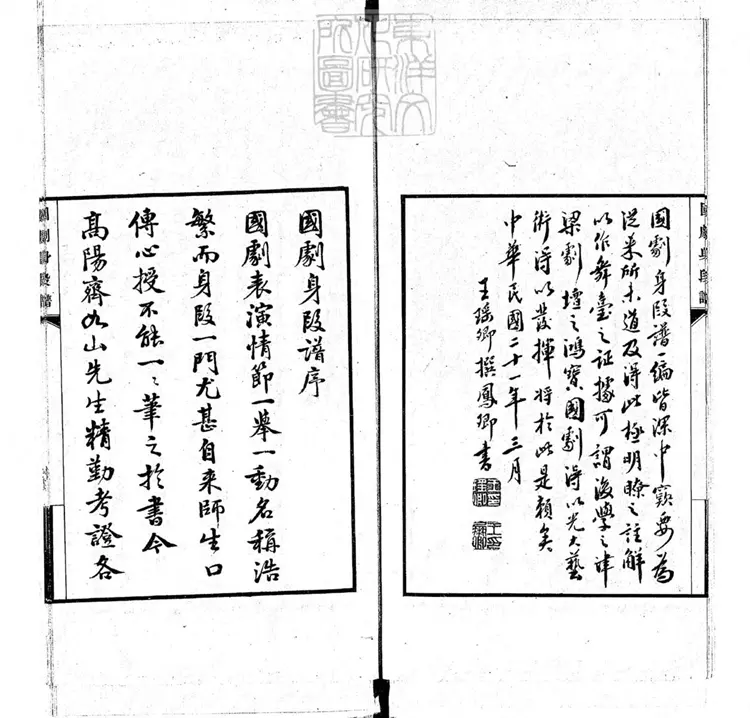 東洋文
化研究
所圖書
國劇身段譜一編皆深中窾要為
從来所未道及得此極明瞭之註解
以作舞臺之証據可謂後學之津
梁劇壇之鴻寶國劇得以光大藝
術得以發揮將於此是賴矣
中華民國二十一年三月
王瑤卿撰鳳卿書
國劇身段譜
國劇身段譜序
國劇表演情節一舉一動名稱浩
繁而身段一門尤甚自来師生口
傳心授不能一〻筆之於書今
高陽齊如山先生精勤考證各
國劇身段譜